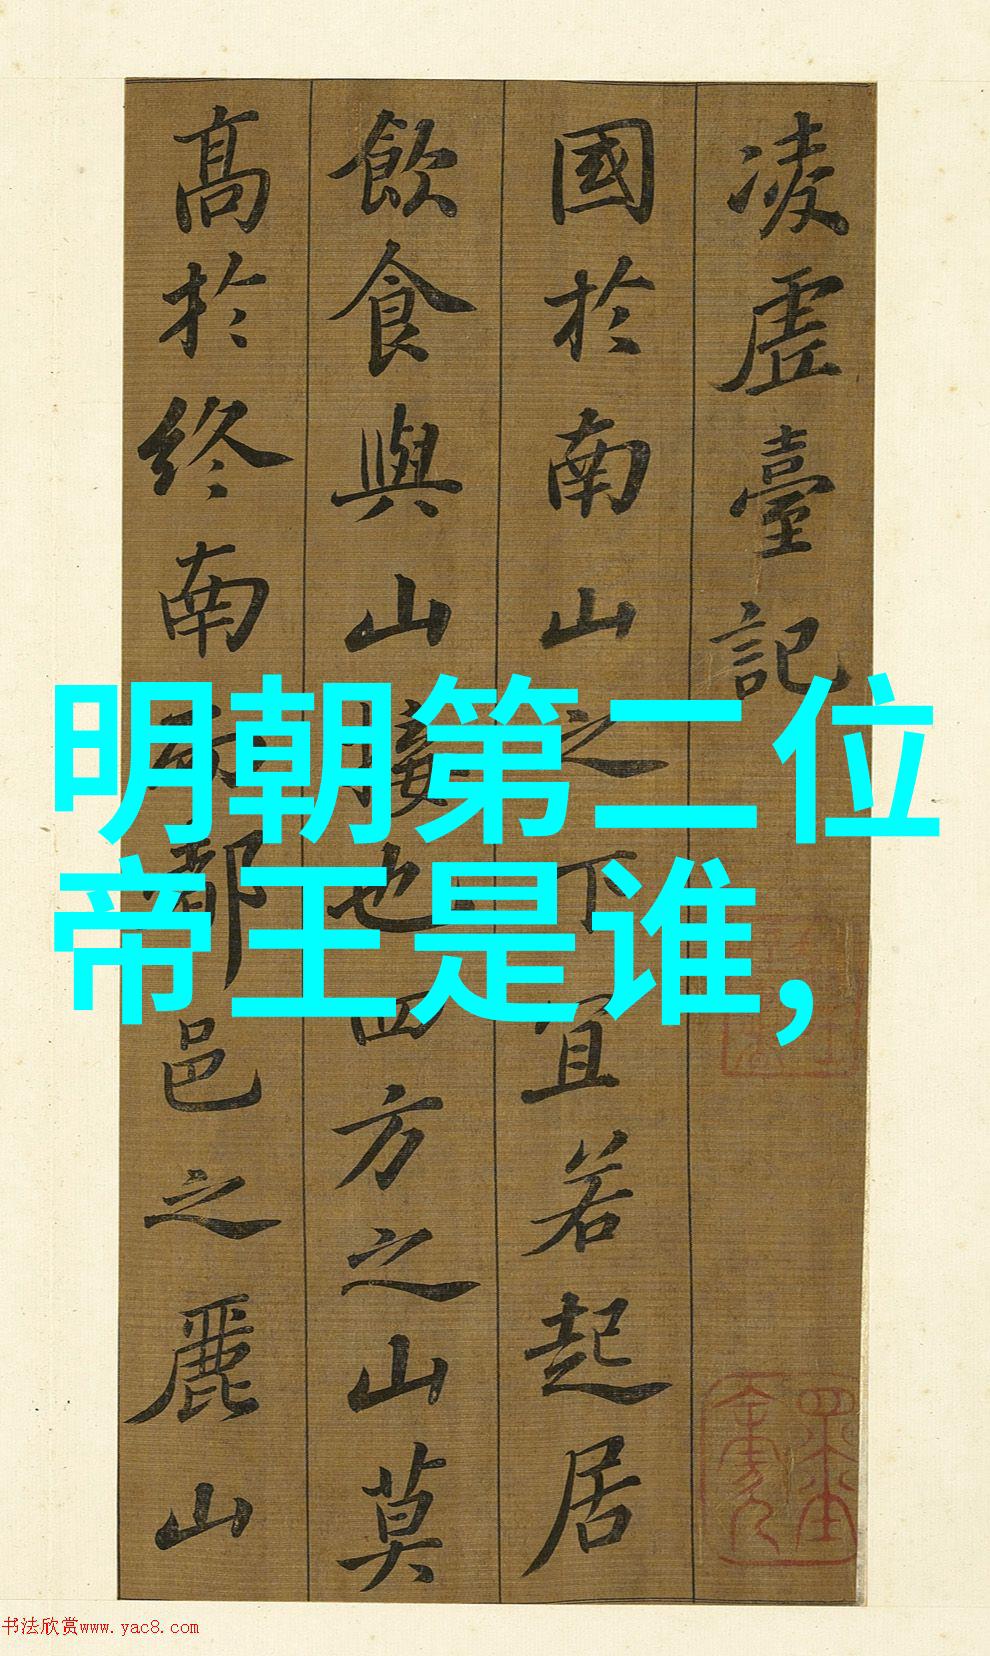 凌虛臺記
國於南山之下宜若起居
飲食與山接也四方之山莫
高於終南而都邑之麗山
明朝第二位
帝王是谁,
书法欣赏www.yac8.com